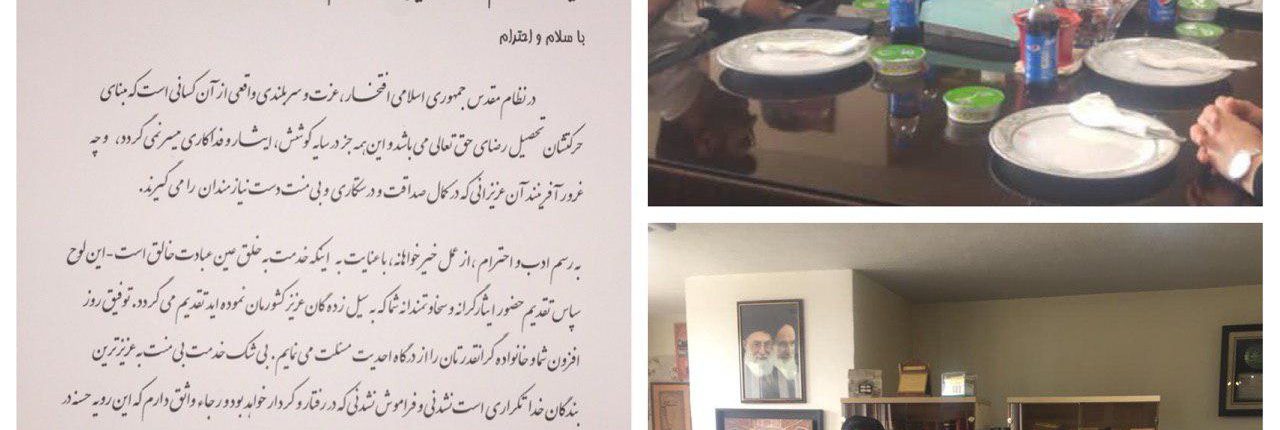 با سلام و احترام
در نظام مقدس جمهوری اسلامی افتخار، عزت و سربلندی واقعی از آن کسانی است که مبنای
حرکتشان تحصیل رضای حق تعالی می باشد و این همه جز در سایه کوشش، ایثار و فداکاری میسر نمی گردد، و چه
غرور آفرینند آن عزیزانی که در کمال صداقت و درستکاری و بی منت دست نیازمندان را می گیرند.
به رسم ادب و احترام، از عمل خیرخواهانه، با عنایت به اینکه خدمت به خلق عین عبادت خالق است - این لوح
سپاس تقدیم حضور ایثارگرانه و سخاوتمندانه شما که به سیل زده گان عزیز کشورمان نموده اید تقدیم می گردد. توفیق روز
افزون شما و خانواده گرانقدرتان را از درگاه احدیت مسئلت می نمایم. بی شک خدمت بی منت به عزیزترین
بندگان خدا تکراری است نشدنی و فراموش نشدنی که در رفتار و کردار خواهد بود و رجاء واثق دارم که این رویه حسنه در